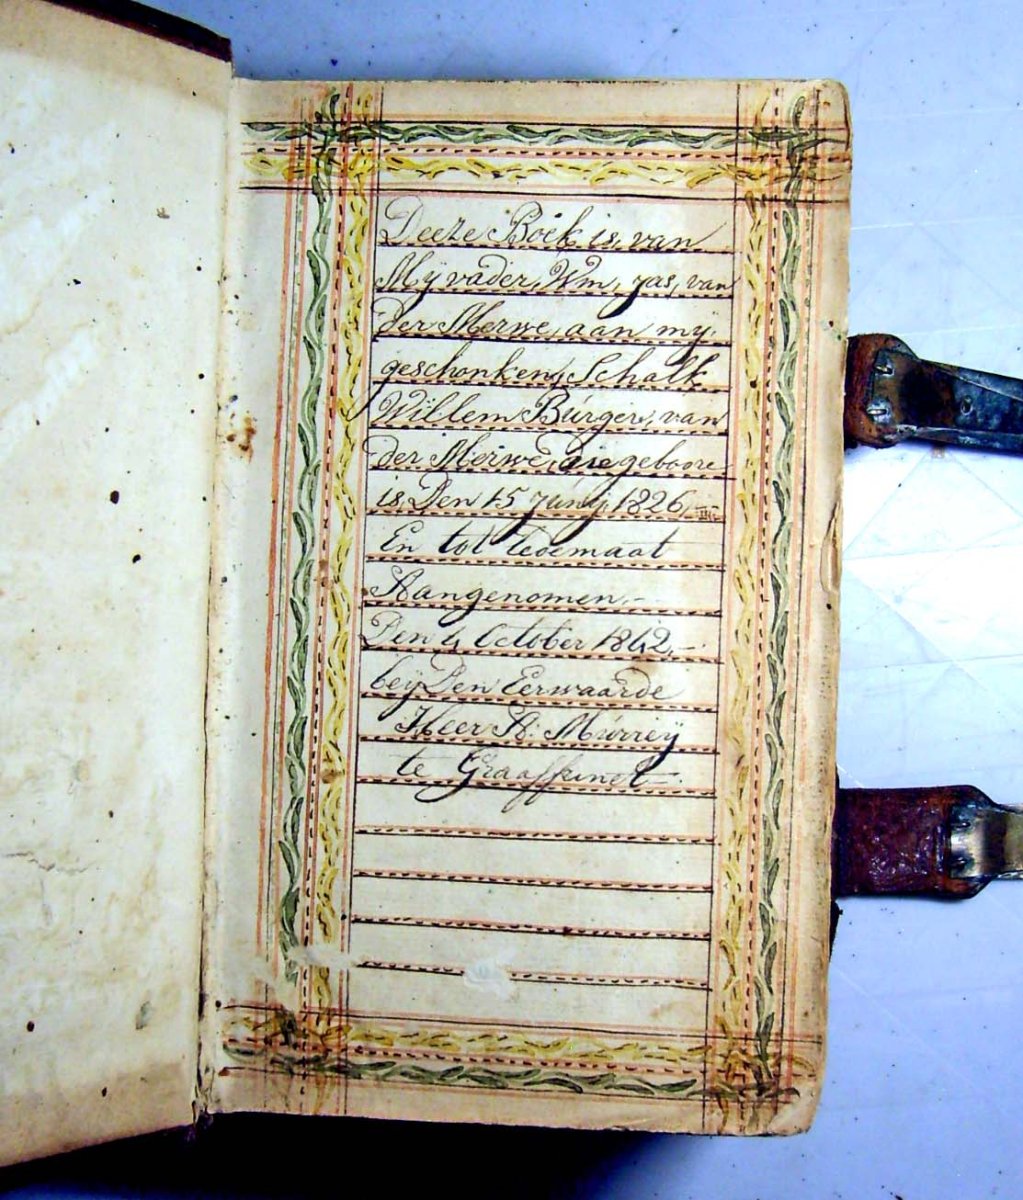 Deeze Boek is, van
Mij vader, Wm, Jas, van
Der Merwe, aan mij,
geschonken, Schalk
Willem Búrger, van
der Merwe, die geboore
is, Den 15 Junij, 1826,
En tot ledemaat
Aangenomen,-
Den 4, October 1842,-
beij Den Eerwaarde
Heer A: Múrreij
te Graaffrinet-.